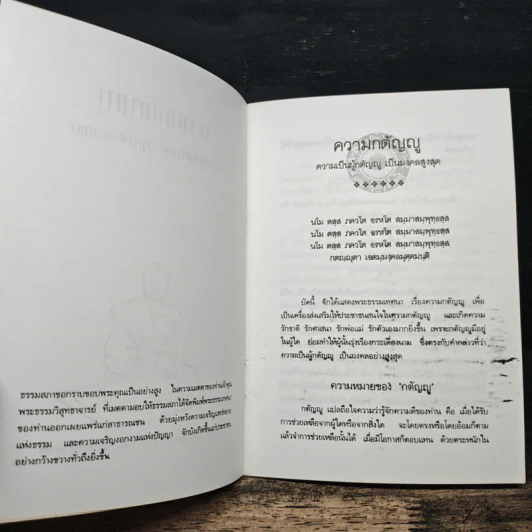 ธรรมสภาขอกราบขอบพระคุณเป็นอย่างสูง ในความเมตตาของท่านเจ้าคุณ
พระธรรมวิสุทธาจารย์ ที่เมตตามอบให้ธรรมสภาได้จัดพิมพ์พระธรรมเทศนา
ของท่านออกเผยแพร่แก่สาธารณชน ด้วยมุ่งหวังความเจริญแพร่หลาย
แห่งธรรม และความเจริญงอกงามแห่งปัญญา จักบังเกิดขึ้นแก่ประชาชน
อย่างกว้างขวางทั่วถึงยิ่งขึ้น
ความกตัญญู
ความเป็นผู้กตัญญู เป็นมงคลสูงสุด
นโม ตสฺส ภควโต อรหโต สมฺมาสมฺพุทฺธสฺส
นโม ตสฺส ภควโต อรหโต สมฺมาสมฺพุทฺธสฺส
นโม ตสฺส ภควโต อรหโต สมฺมาสมฺพุทฺธสฺส
กตญฺญุตา เอตมฺมงฺคลมุตฺตมนฺติ
บัดนี้ จักได้แสดงพระธรรมเทศนา เรื่องความกตัญญู เพื่อ
เป็นเครื่องส่งเสริมให้ประชาชนสนใจในความกตัญญู และเกิดความ
รักชาติ รักศาสนา รักพ่อแม่ รักตัวเองมากยิ่งขึ้น เพราะกตัญญูมีอยู่
ในผู้ใด ย่อมทำให้ผู้นั้นรุ่งเรืองกระเดื่องนาม ซึ่งตรงกับคำกล่าวที่ว่า
ความเป็นผู้กตัญญู เป็นมงคลอย่างสูงสุด
ความหมายของ "กตัญญู"
กตัญญู แปลถือใจความว่ารู้จักความดีของท่าน คือ เมื่อได้รับ
การช่วยเหลือจากผู้ใดหรือจากสิ่งใด จะโดยตรงหรือโดยอ้อมก็ตาม
แล้วจำการช่วยเหลือนั้นได้ เมื่อมีโอกาสก็ตอบแทน ด้วยตระหนักใน